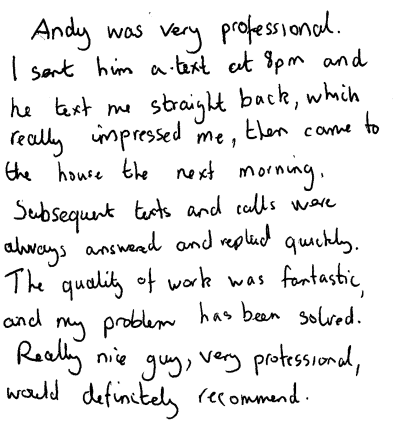 Andy was very professional.
I sent him a text at 8pm and
he text me straight back, which
really impressed me, then came to
the house the next morning.
Subsequent texts and calls were
always answered and replied quickly.
The quality of work was fantastic,
and my problem has been solved.
Really nice guy, very professional,
would definitely recommend.